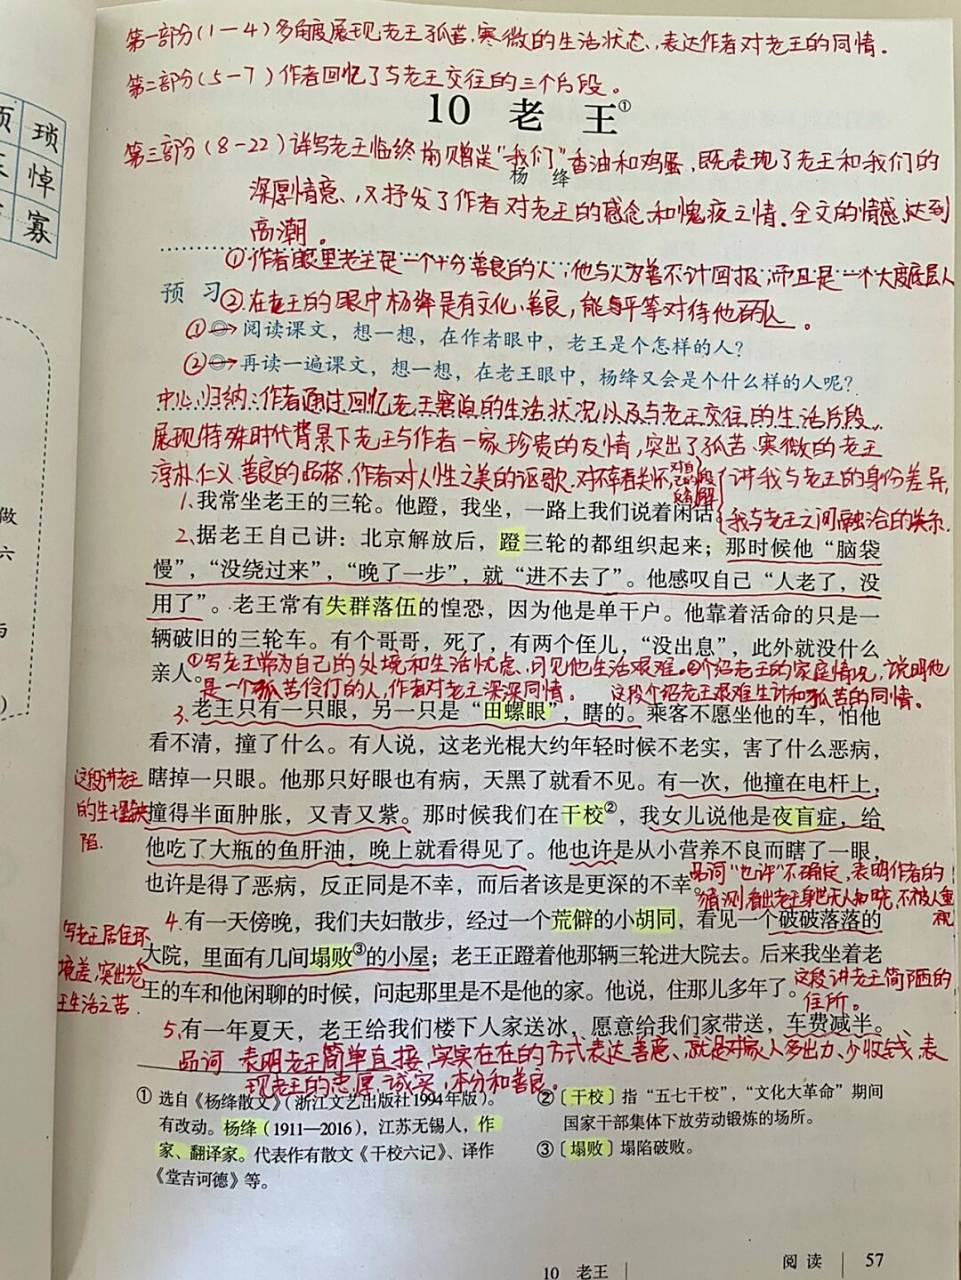 第一部分(1—4)多角度展现老王孤苦、寒微的生活状态,表达作者对老王的同情.
第二部分(5-7)作者回忆了与老王交往的三个片段。
10 老 王①
第三部分(8-22)详写老王临终前赠送"我们"香油和鸡蛋,既表现了老王和我们的
杨 绛
深厚情意、又抒发了作者对老王的感念和愧疚之情.全文的情感达到
高潮。
①作者眼里老王是一个十分善良的人,他与人为善不计回报,而且是一个大度底层人
预 习
②在老王的眼中杨绛是有文化、善良,能平等对待他的人。
①阅读课文,想一想,在作者眼中,老王是个怎样的人?
②再读一遍课文,想一想,在老王眼中,杨绛又会是个什么样的人呢?
中心归纳:作者通过回忆老王窘迫的生活状况以及与老王交往的生活片段.
展现特殊时代背景下老王与作者一家珍贵的友情,突出了孤苦、寒微的老王
淳朴仁义、善良的品格.作者对人性之美的讴歌.对不幸者关怀
讲我与老王的身份差异,
我与老王之间融洽的关系.
1.我常坐老王的三轮。他蹬,我坐,一路上我们说着闲话。
2.据老王自己讲:北京解放后,蹬三轮的都组织起来;那时候他“脑袋
慢”,“没绕过来”,“晚了一步”,就“进不去了”。他感叹自己“人老了,没
用了”。老王常有失群落伍的惶恐,因为他是单干户。他靠着活命的只是一
辆破旧的三轮车。有个哥哥,死了,有两个侄儿,“没出息”,此外就没什么
亲人。
①写老王常为自己的处境和生活忧虑、可见他生活艰难.②介绍老王的家庭情况,说明他
是一个孤苦伶仃的人,作者对老王深深同情。 这段介绍老王艰难生计和孤苦的同情。
3.老王只有一只眼,另一只是“田螺眼”,瞎的。乘客不愿坐他的车,怕他
看不清,撞了什么。有人说,这老光棍大约年轻时候不老实,害了什么恶病,
瞎掉一只眼。他那只好眼也有病,天黑了就看不见。有一次,他撞在电杆上,
撞得半面肿胀,又青又紫。那时候我们在干校②,我女儿说他是夜盲症,给
他吃了大瓶的鱼肝油,晚上就看得见了。他也许是从小营养不良而瞎了一眼,
也许是得了恶病,反正同是不幸,而后者该是更深的不幸。
这段讲老王
的生理缺
陷.
品词"也许"不确定,表明作者的
猜测,看出老王身世无人知晓,不被人重
视
4.有一天傍晚,我们夫妇散步,经过一个荒僻的小胡同,看见一个破破落落的
大院,里面有几间塌败③的小屋;老王正蹬着他那辆三轮进大院去。后来我坐着老
王的车和他闲聊的时候,问起那里是不是他的家。他说,住那儿多年了。
写老王居住环
境差,突出老
王生活之苦.
这段讲老王简陋的
住所。
5.有一年夏天,老王给我们楼下人家送冰,愿意给我们家带送,车费减半。
品词 表明老王简单直接、实实在在的方式表达善意、就是对家人多出力、少收钱、表
现老王的忠厚诚实,本分和善良。
① 选自《杨绛散文》(浙江文艺出版社1994年版)。
有改动。杨绛(1911—2016),江苏无锡人,作
家、翻译家。代表作有散文《干校六记》、译作
《堂吉诃德》等。
② 〔干校〕指“五七干校”,“文化大革命”期间
国家干部集体下放劳动锻炼的场所。
③ 〔塌败〕塌陷破败。
10 老王
阅 读 57
琐
悼
寡
做
六